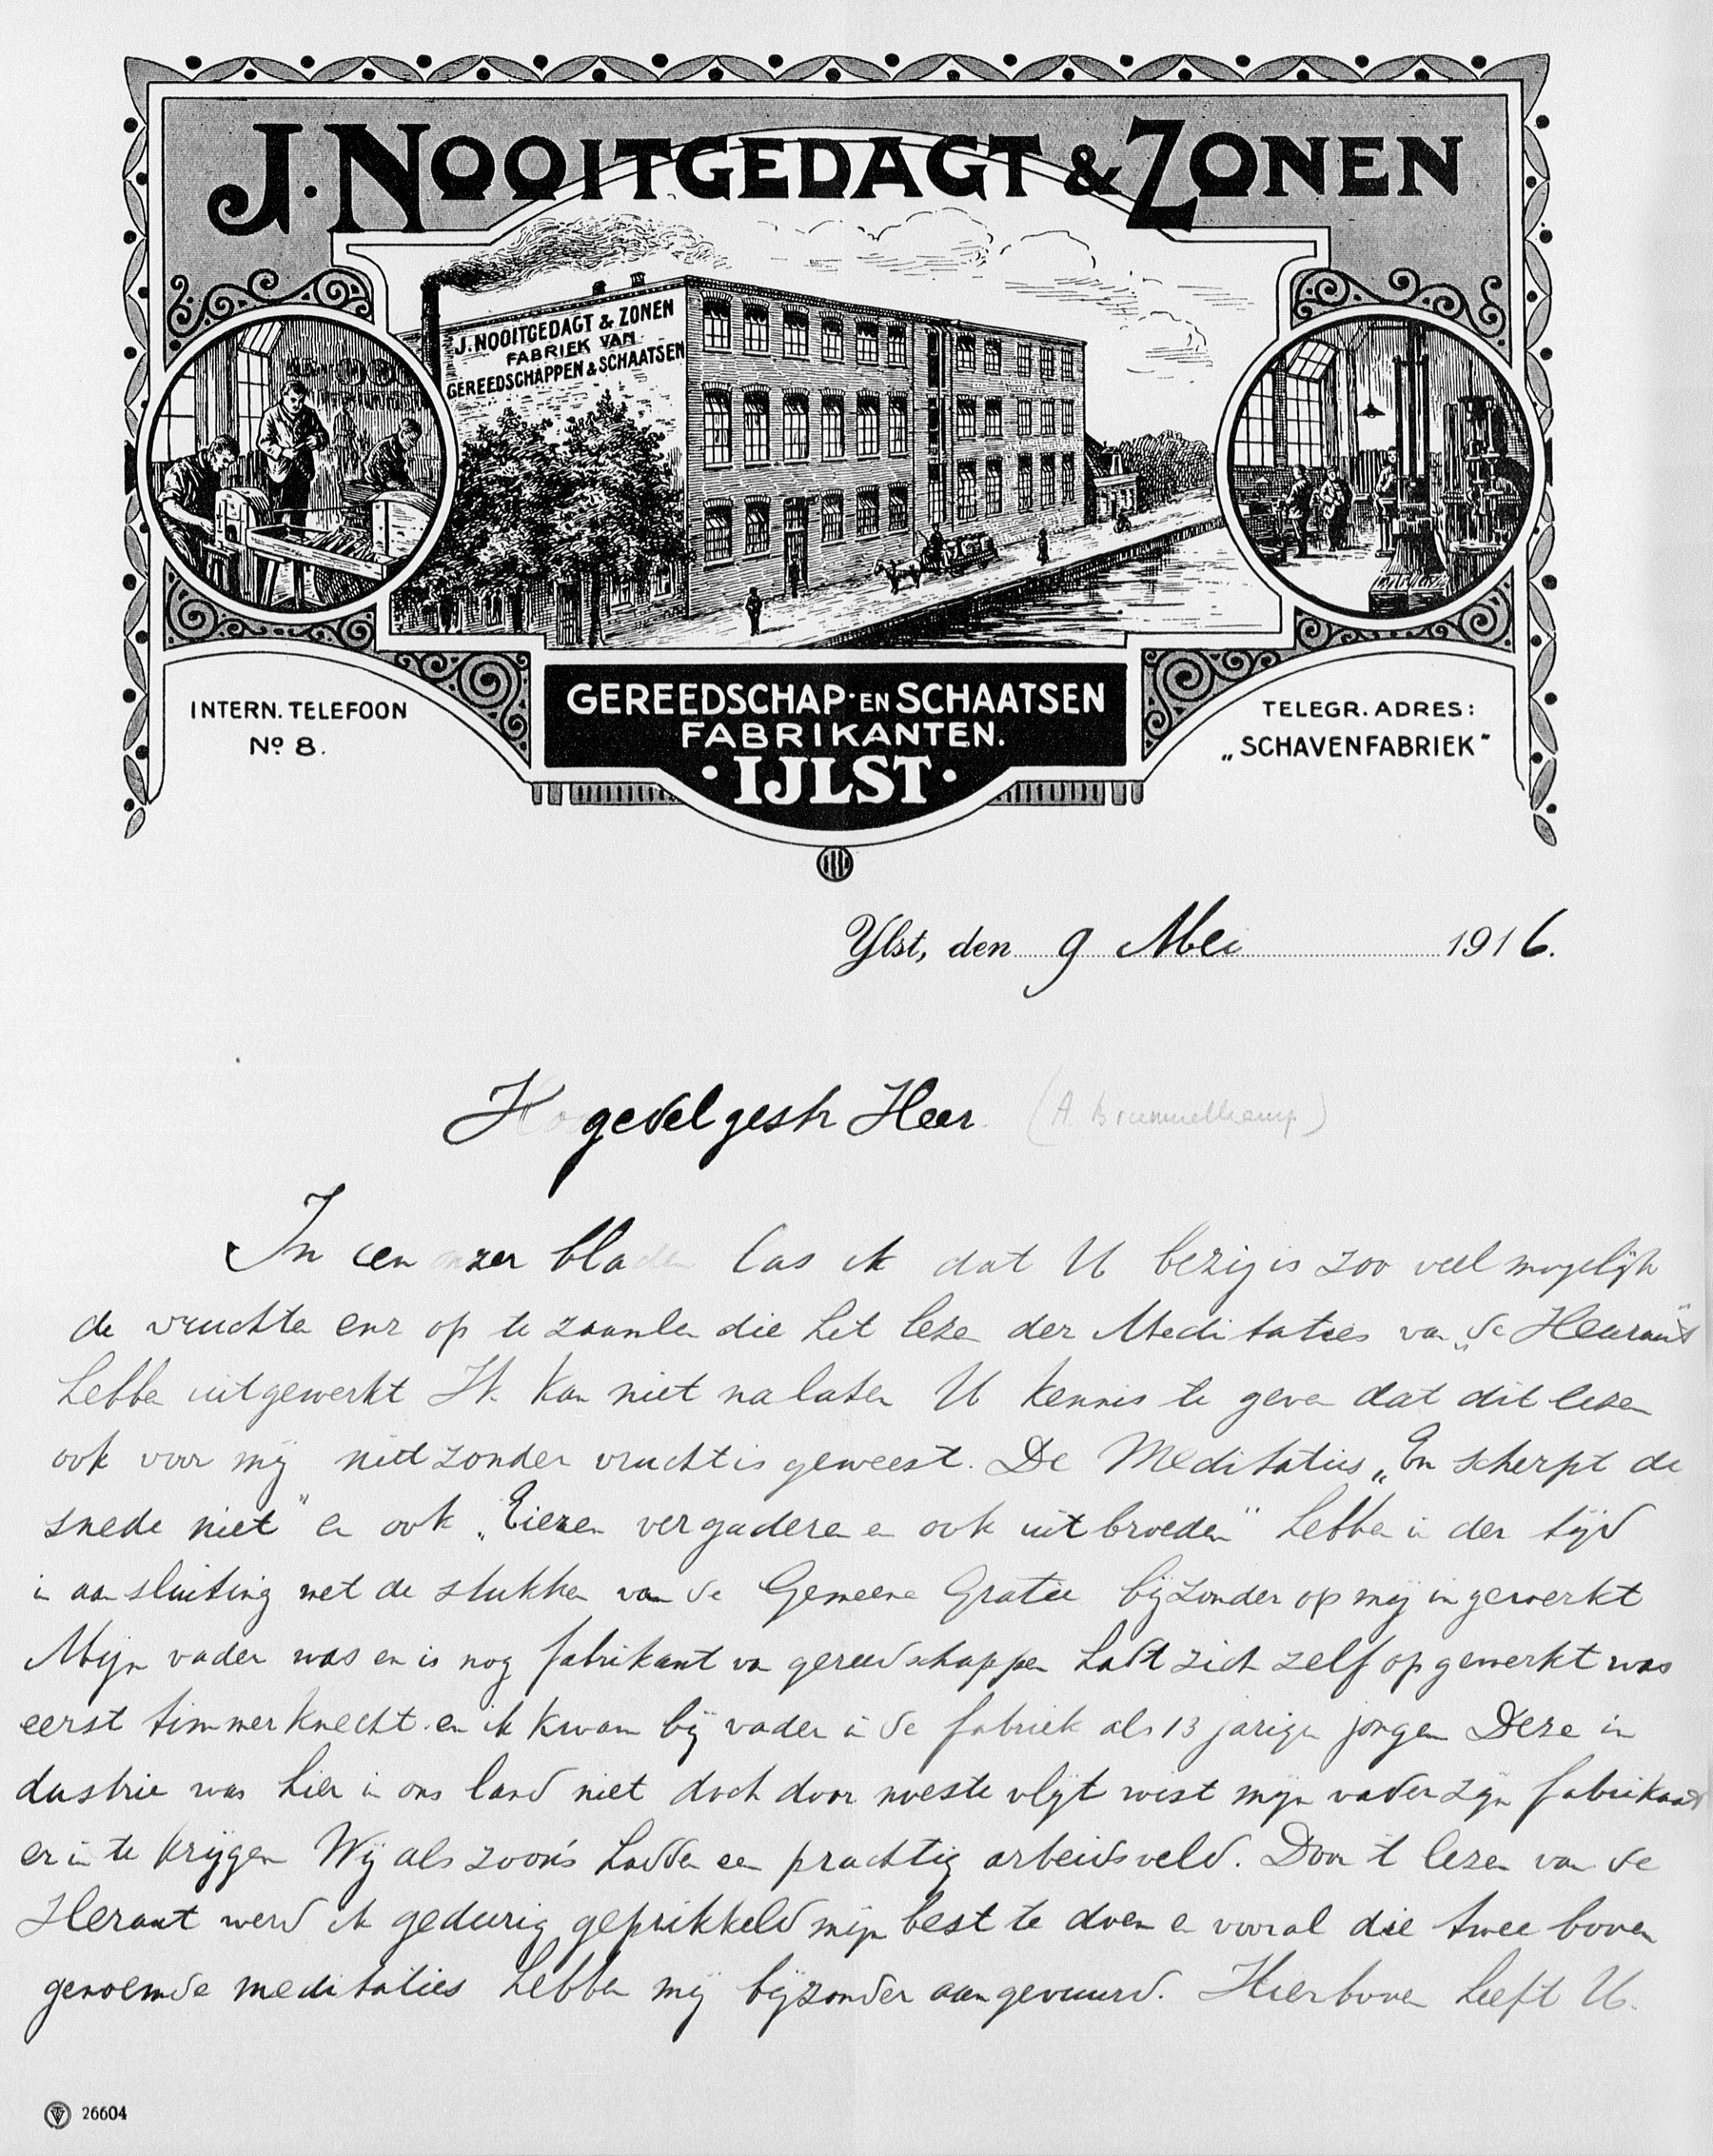 J. NOOITGEDAGT & ZONEN
J. NOOITGEDAGT & ZONEN
FABRIEK VAN
GEREEDSCHAPPEN & SCHAATSEN
INTERN. TELEFOON
Nº 8.
GEREEDSCHAP- EN SCHAATSEN
FABRIKANTEN.
· IJLST ·
TELEGR. ADRES:
„SCHAVENFABRIEK"
Ylst, den 9 Mei 1916.
Hoogedelgestr Heer. (A Brummelkamp)
In een onzer bladen las ik dat U bezig is zoo veel mogelijk
de vruchten op te zamelen die het lezen der Meditaties van „de Heraut"
hebben uitgewerkt Ik kan niet nalaten U kennis te geven dat dit lezen
ook voor mij niet zonder vrucht is geweest. De Meditaties „En scherpt de
snede niet" en ook „Eieren vergaderen en ook uitbroeden" hebben in der tijd
in aansluiting met de stukken van de Gemeene Gratie bijzonder op mij ingewerkt
Mijn vader was en is nog fabrikant van gereedschappen hadt zich zelf opgewerkt was
eerst timmerknecht en ik kwam bij vader in de fabriek als 13 jarige jongen Deze in
dustrie was hier in ons land niet doch door noeste vlijt wist mijn vader zijn fabrikaat
er in te krijgen Wij als zoons hadden een prachtig arbeidsveld. Door 't lezen van de
Heraut werd ik gedurig geprikkeld mijn best te doen en vooral die twee boven
genoemde meditaties hebben mij bijzonder aangevuurd. Hierboven heeft U
26604